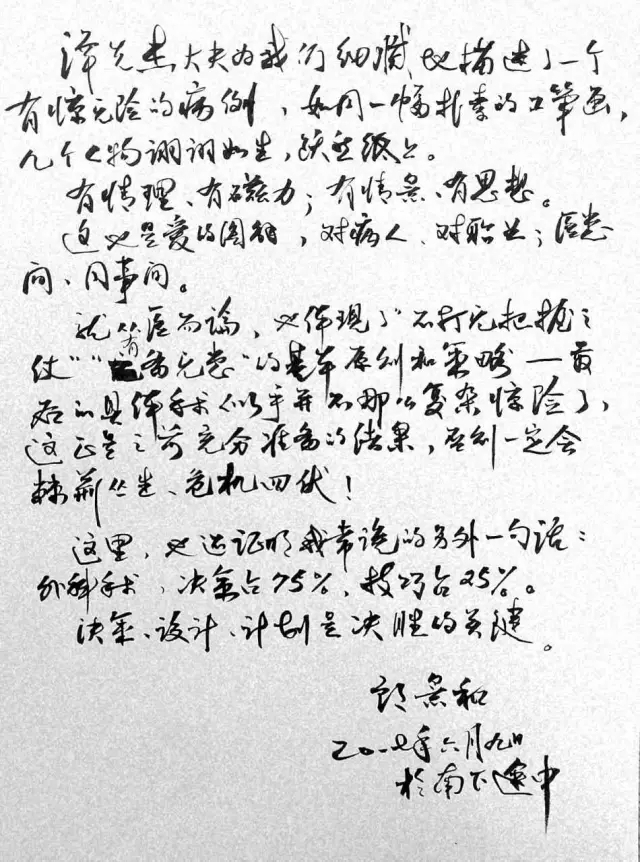 泽先杰大夫为我们细腻地描述了一个
有惊无险的病例，如同一幅朴素的工笔画，
几个人物诩诩如生，跃然纸上。
有情理、有磁力；有情景、有思想。
这必是爱的图解，对病人、对职业；医患
间、同事间。
就医而论，也体现了“不打无把握之
仗”“有备无患”的基本原则和策略——最
后的具体手术似乎并不那么复杂惊险了，
这正是之前充分准备的结果，否则一定会
棘荆丛生、危机四伏！
这里，也还证明我常说的另外一句话：
外科手术，决策占75%，技巧占25%。
决策、设计、计划是决胜的关键。
郎景和
二〇一七年六月九日
于南下途中